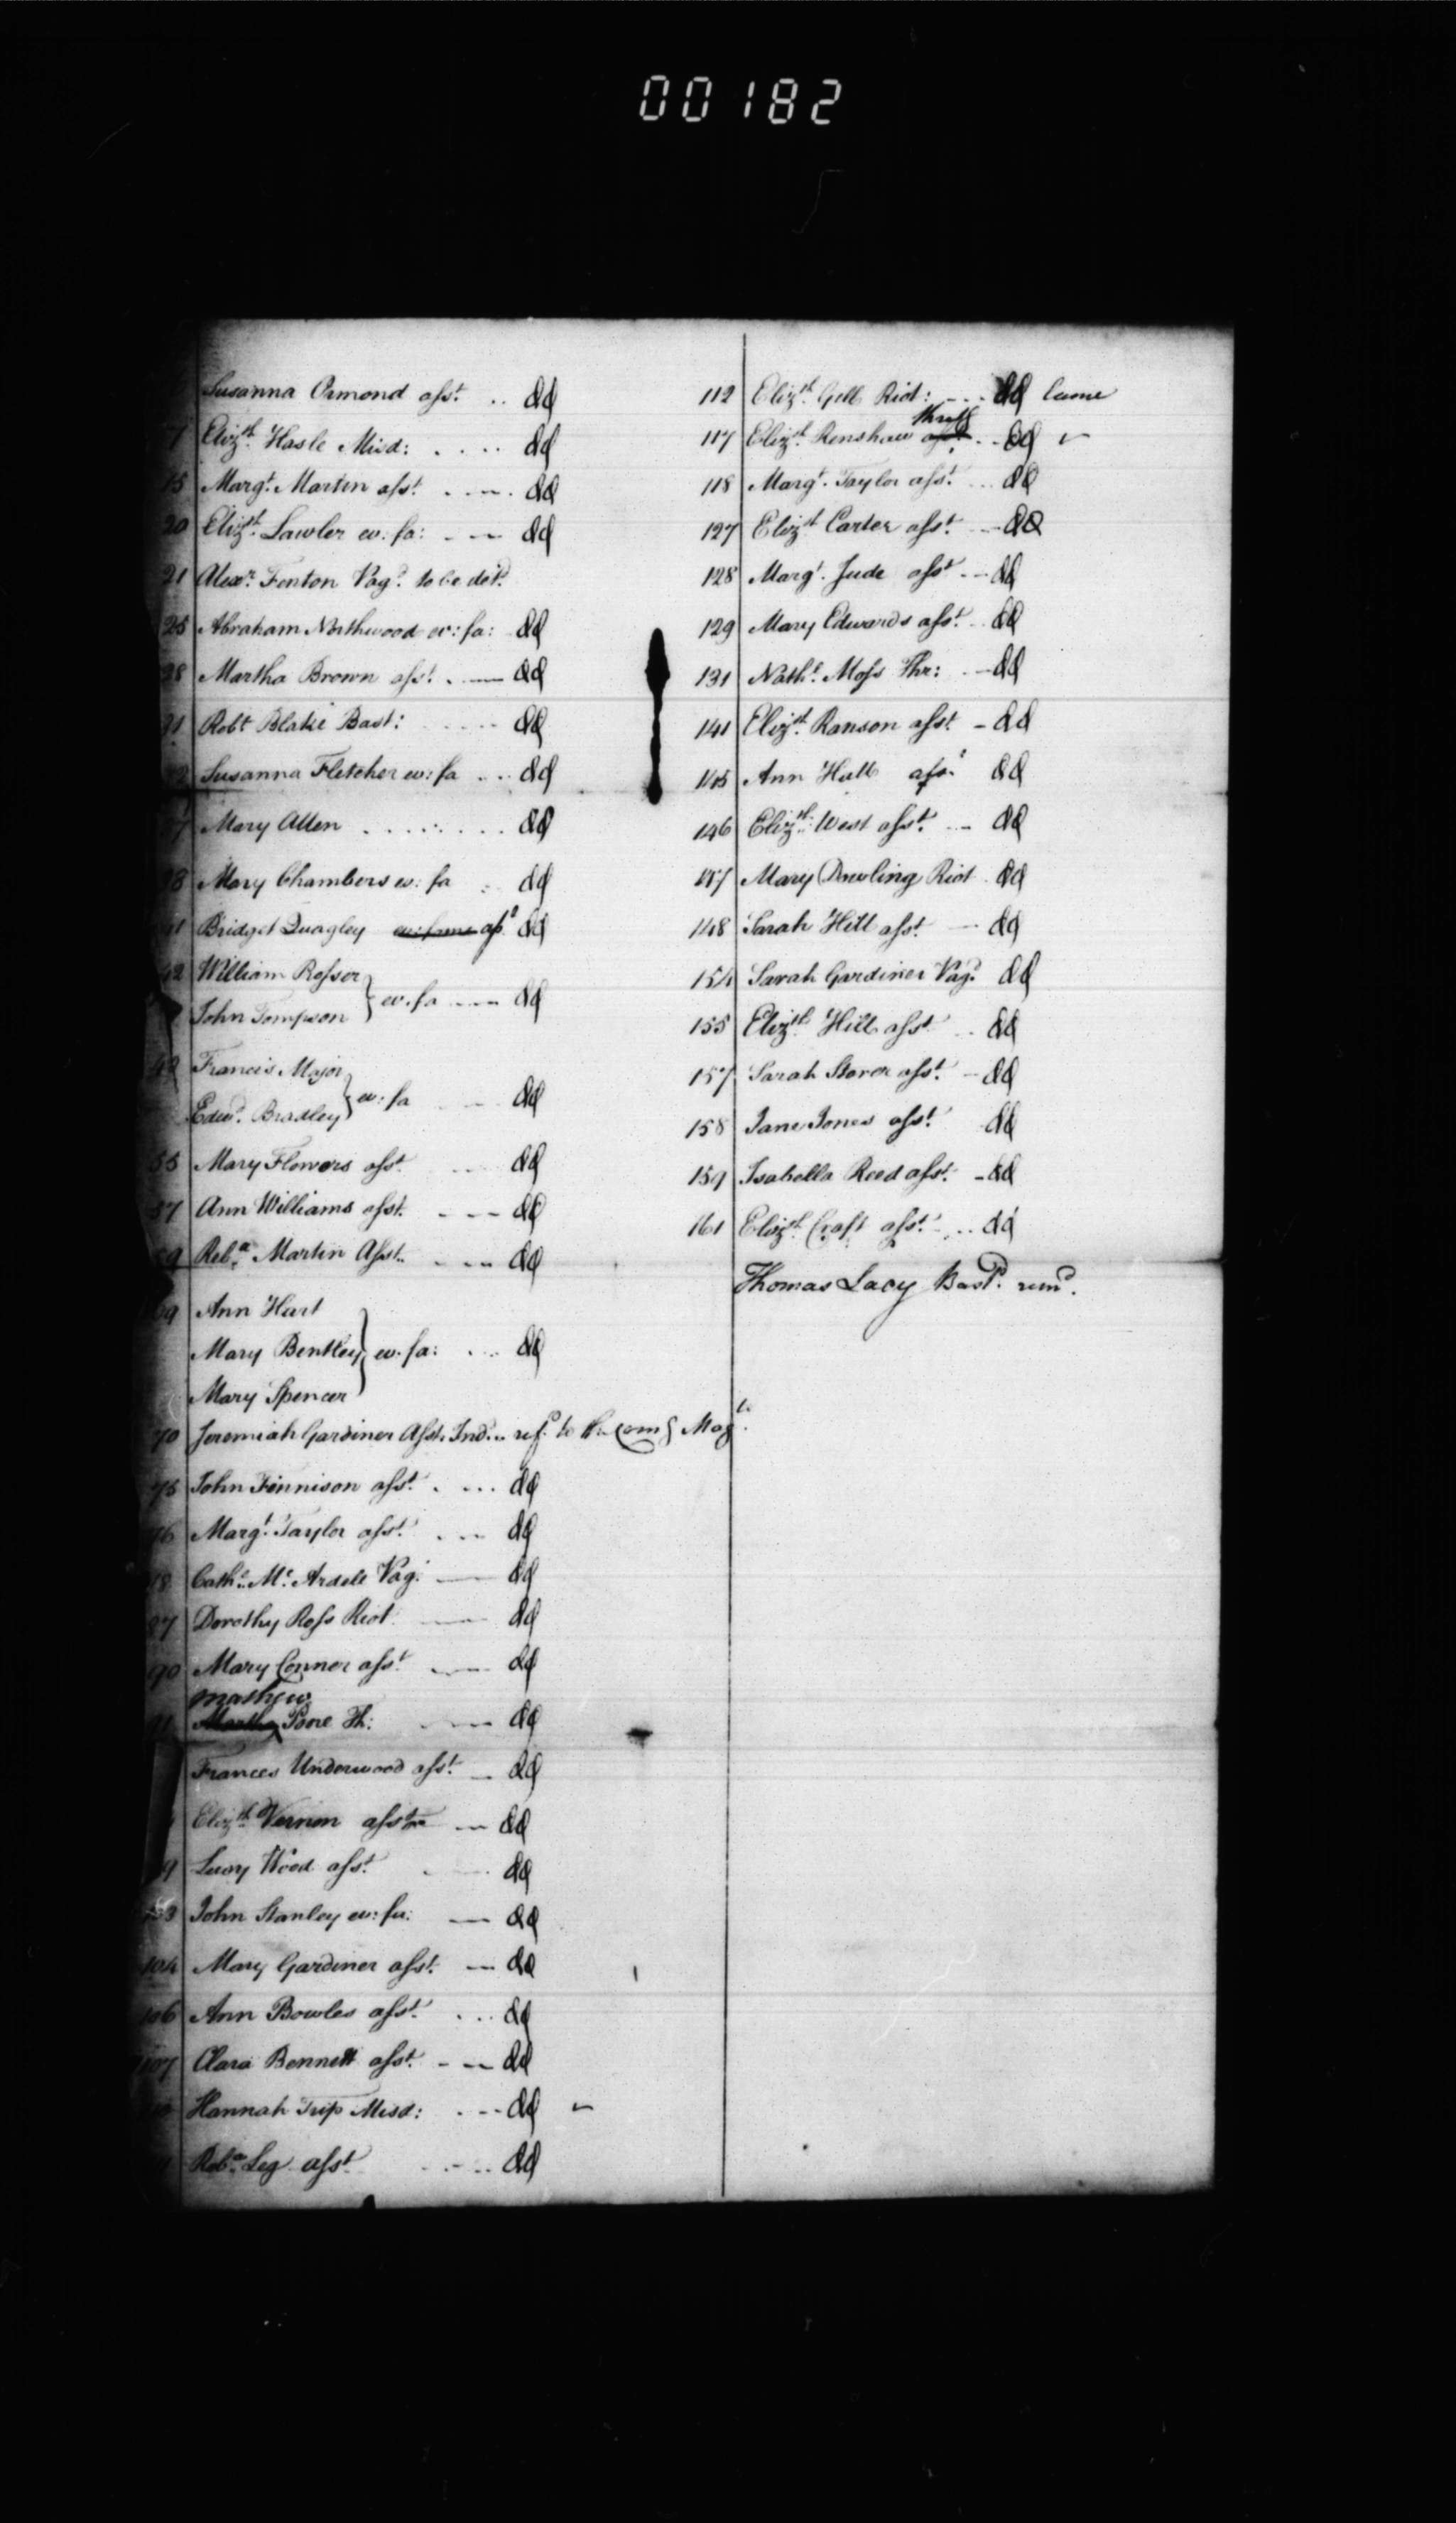 00182
Susanna Ormond asst. .. dd
7 Elizth. Hasle Misd: . . . . dd
15 Margt. Martin asst. . -- . dd
20 Elizth. Lawler ev: fa: - -- dd
21 Alexr. Fenton Vagd. to be det.
25 Abraham Northwood ev: fa: dd
28 Martha Brown asst. . -- dd
31 Robt Blake Bast: ..... dd
32 Susanna Fletcher ev: fa .. dd
37 Mary Allen . . . . . . . . dd
38 Mary Chambers ev: fa : dd
41 Bridget Quagley asst dd
42 William Rosser
John Tompson } ev. fa ---- dd
Francis Major
Edwd. Bradley } ev: fa --- dd
55 Mary Flowers asst. ... dd
57 Ann Williams asst. - -- dd
59 Reba. Martin Asst. . -- dd
69 Ann Hart
Mary Bentley } ev. fa: . .. dd
Mary Spencer
70 Jeremiah Gardiner Asst. Ind. refd. to the Comg Magts.
75 John Finnison asst. . ... dd
76 Margt. Taylor asst. . ... dd
78 Cathe. Mc. Ardell Vag: --- dd
87 Dorothy Ross Riot --- dd
90 Mary Connor asst. --- dd
Mathew
91 Martha Pone Th: --- dd
Frances Underwood asst. - dd
Elizth. Vernon asst -- dd
Lucy Wood asst. . --- dd
103 John Stanley ev: fa: -- dd
104 Mary Gardiner asst. -- dd
106 Ann Bowles asst. . .. dd
107 Clara Bennett asst. - -- dd
Hannah Trip Misd: . -- dd
Reba. Leg asst. .... dd
112 Elizth. Gill Riot: --- dd
117 Elizth. Renshaw asst. .. dd
118 Margt. Taylor asst. ... dd
127 Elizth Carter asst. -- dd
128 Margt. Jude asst. -- dd
129 Mary Edwards asst. .. dd
131 Nathl. Moss Thr: -- dd
141 Elizth. Ranson asst. - dd
145 Ann Hull asst. dd
146 Elizth. West asst. -- dd
147 Mary Dowling Riot . dd
148 Sarah Hill asst. -- dd
154 Sarah Gardiner Vagd. dd
155 Elizth. Hill asst. .. dd
157 Sarah Storer asst. - dd
158 Jane Jones asst. dd
159 Isabella Reed asst. - dd
161 Elizth. Craft asst. ... dd
Thomas Lacy Basty. remd.